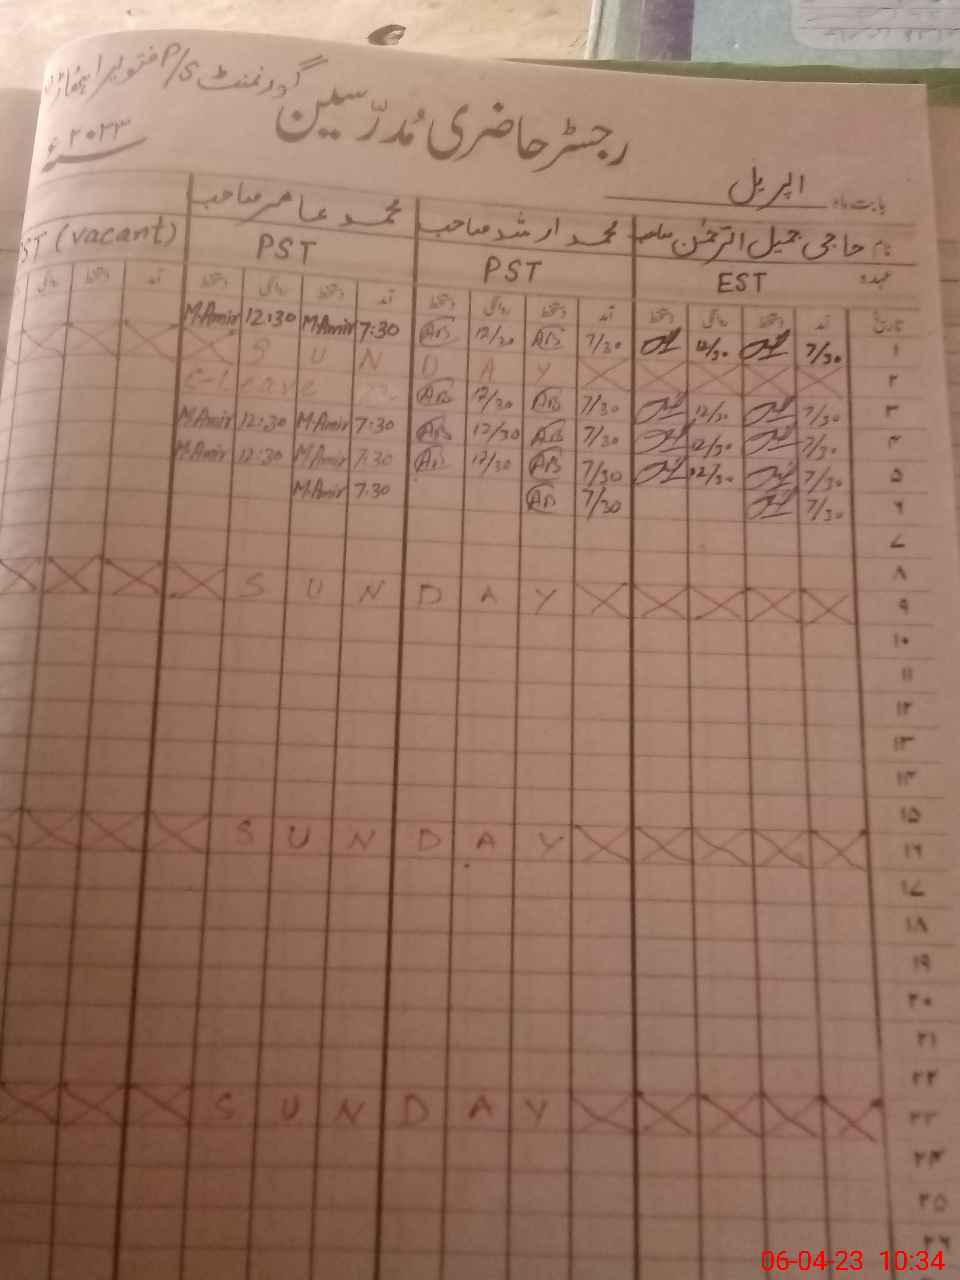 گورنمنٹ P/S
رجسٹر حاضری مُدرّسین
۲۰۲۳ء
بابت ماہ اپریل
نام حاجی جمیل الرحمٰن صاحب محمد ارشد صاحب محمد عامر صاحب
عہدہ EST PST PST PST (vacant)
تاریخ آمد دستخط روانگی دستخط آمد دستخط روانگی دستخط آمد دستخط روانگی دستخط آمد دستخط روانگی
۱ 7/30 12/30 7/30 AB 12/30 AB 7:30 M.Amir 12:30 M.Amir
۲ S U N D A Y
۳ 7/30 12/30 7/30 AB 12/30 AB S-Leave
۴ 7/30 12/30 7/30 AB 12/30 AB 7:30 M.Amir 12:30 M.Amir
۵ 7/30 12/30 7/30 AB 12/30 AB 7:30 M.Amir 12:30 M.Amir
۶ 7/30 7/30 AB 7:30 M.Amir
۷
۸
۹ S U N D A Y
۱۰
۱۱
۱۲
۱۳
۱۴
۱۵
۱۶ S U N D A Y
۱۷
۱۸
۱۹
۲۰
۲۱
۲۲
۲۳ S U N D A Y
۲۴
۲۵
۲۶
06-04-23 10:34